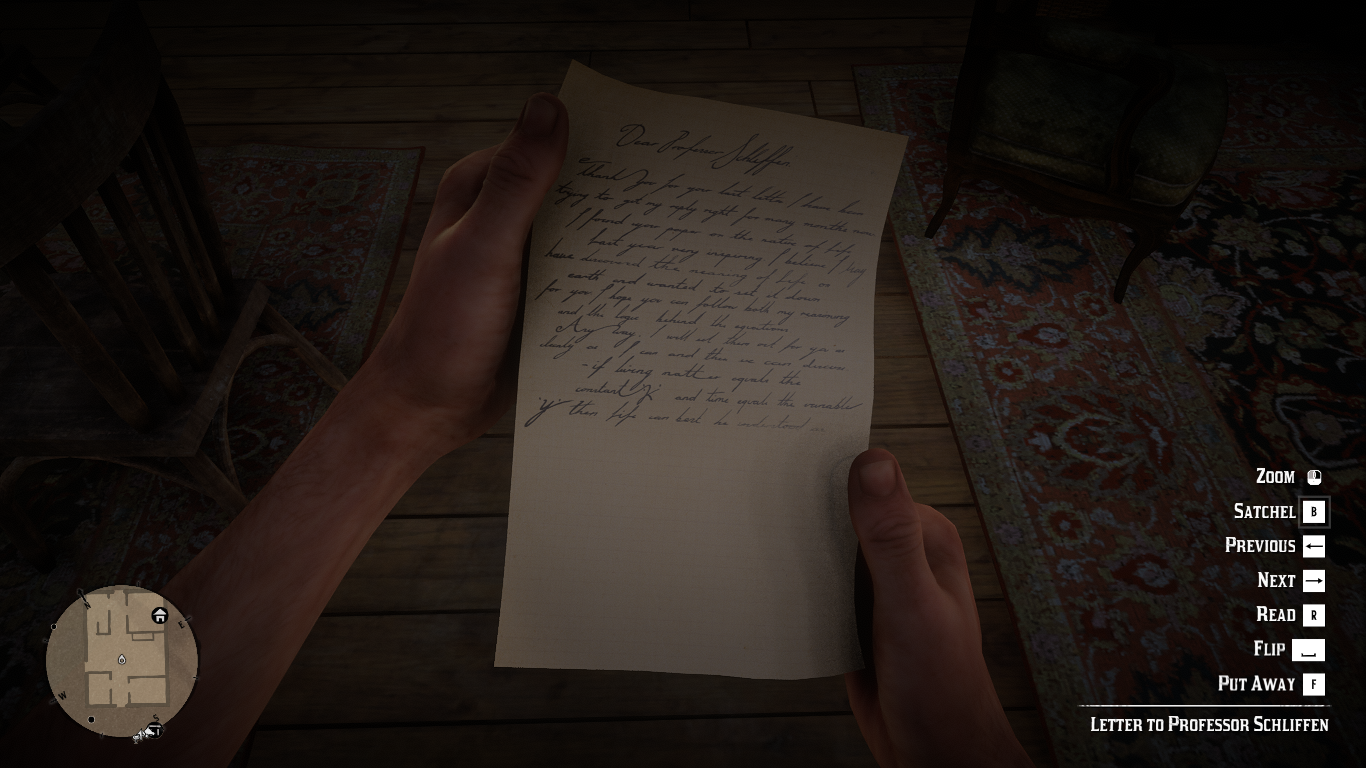 Dear Professor Schliffen
thank you for your last letter I have been
trying to get my reply right for many months now
I found your paper on the nature of life
very inspiring I believe I may
have discovered the meaning of life on
earth and wanted to set it down
for you I hope you can follow both my reasoning
and the logic behind the equations
I will set them out for you as
clearly as I can and then we can discuss
- if living matter equals the
constant 'X' and time equals the variable
'Y' then life can best be understood as
ZOOM
SATCHEL B
PREVIOUS ←
NEXT →
READ R
FLIP
PUT AWAY F
LETTER TO PROFESSOR SCHLIFFEN
N
E
W
S